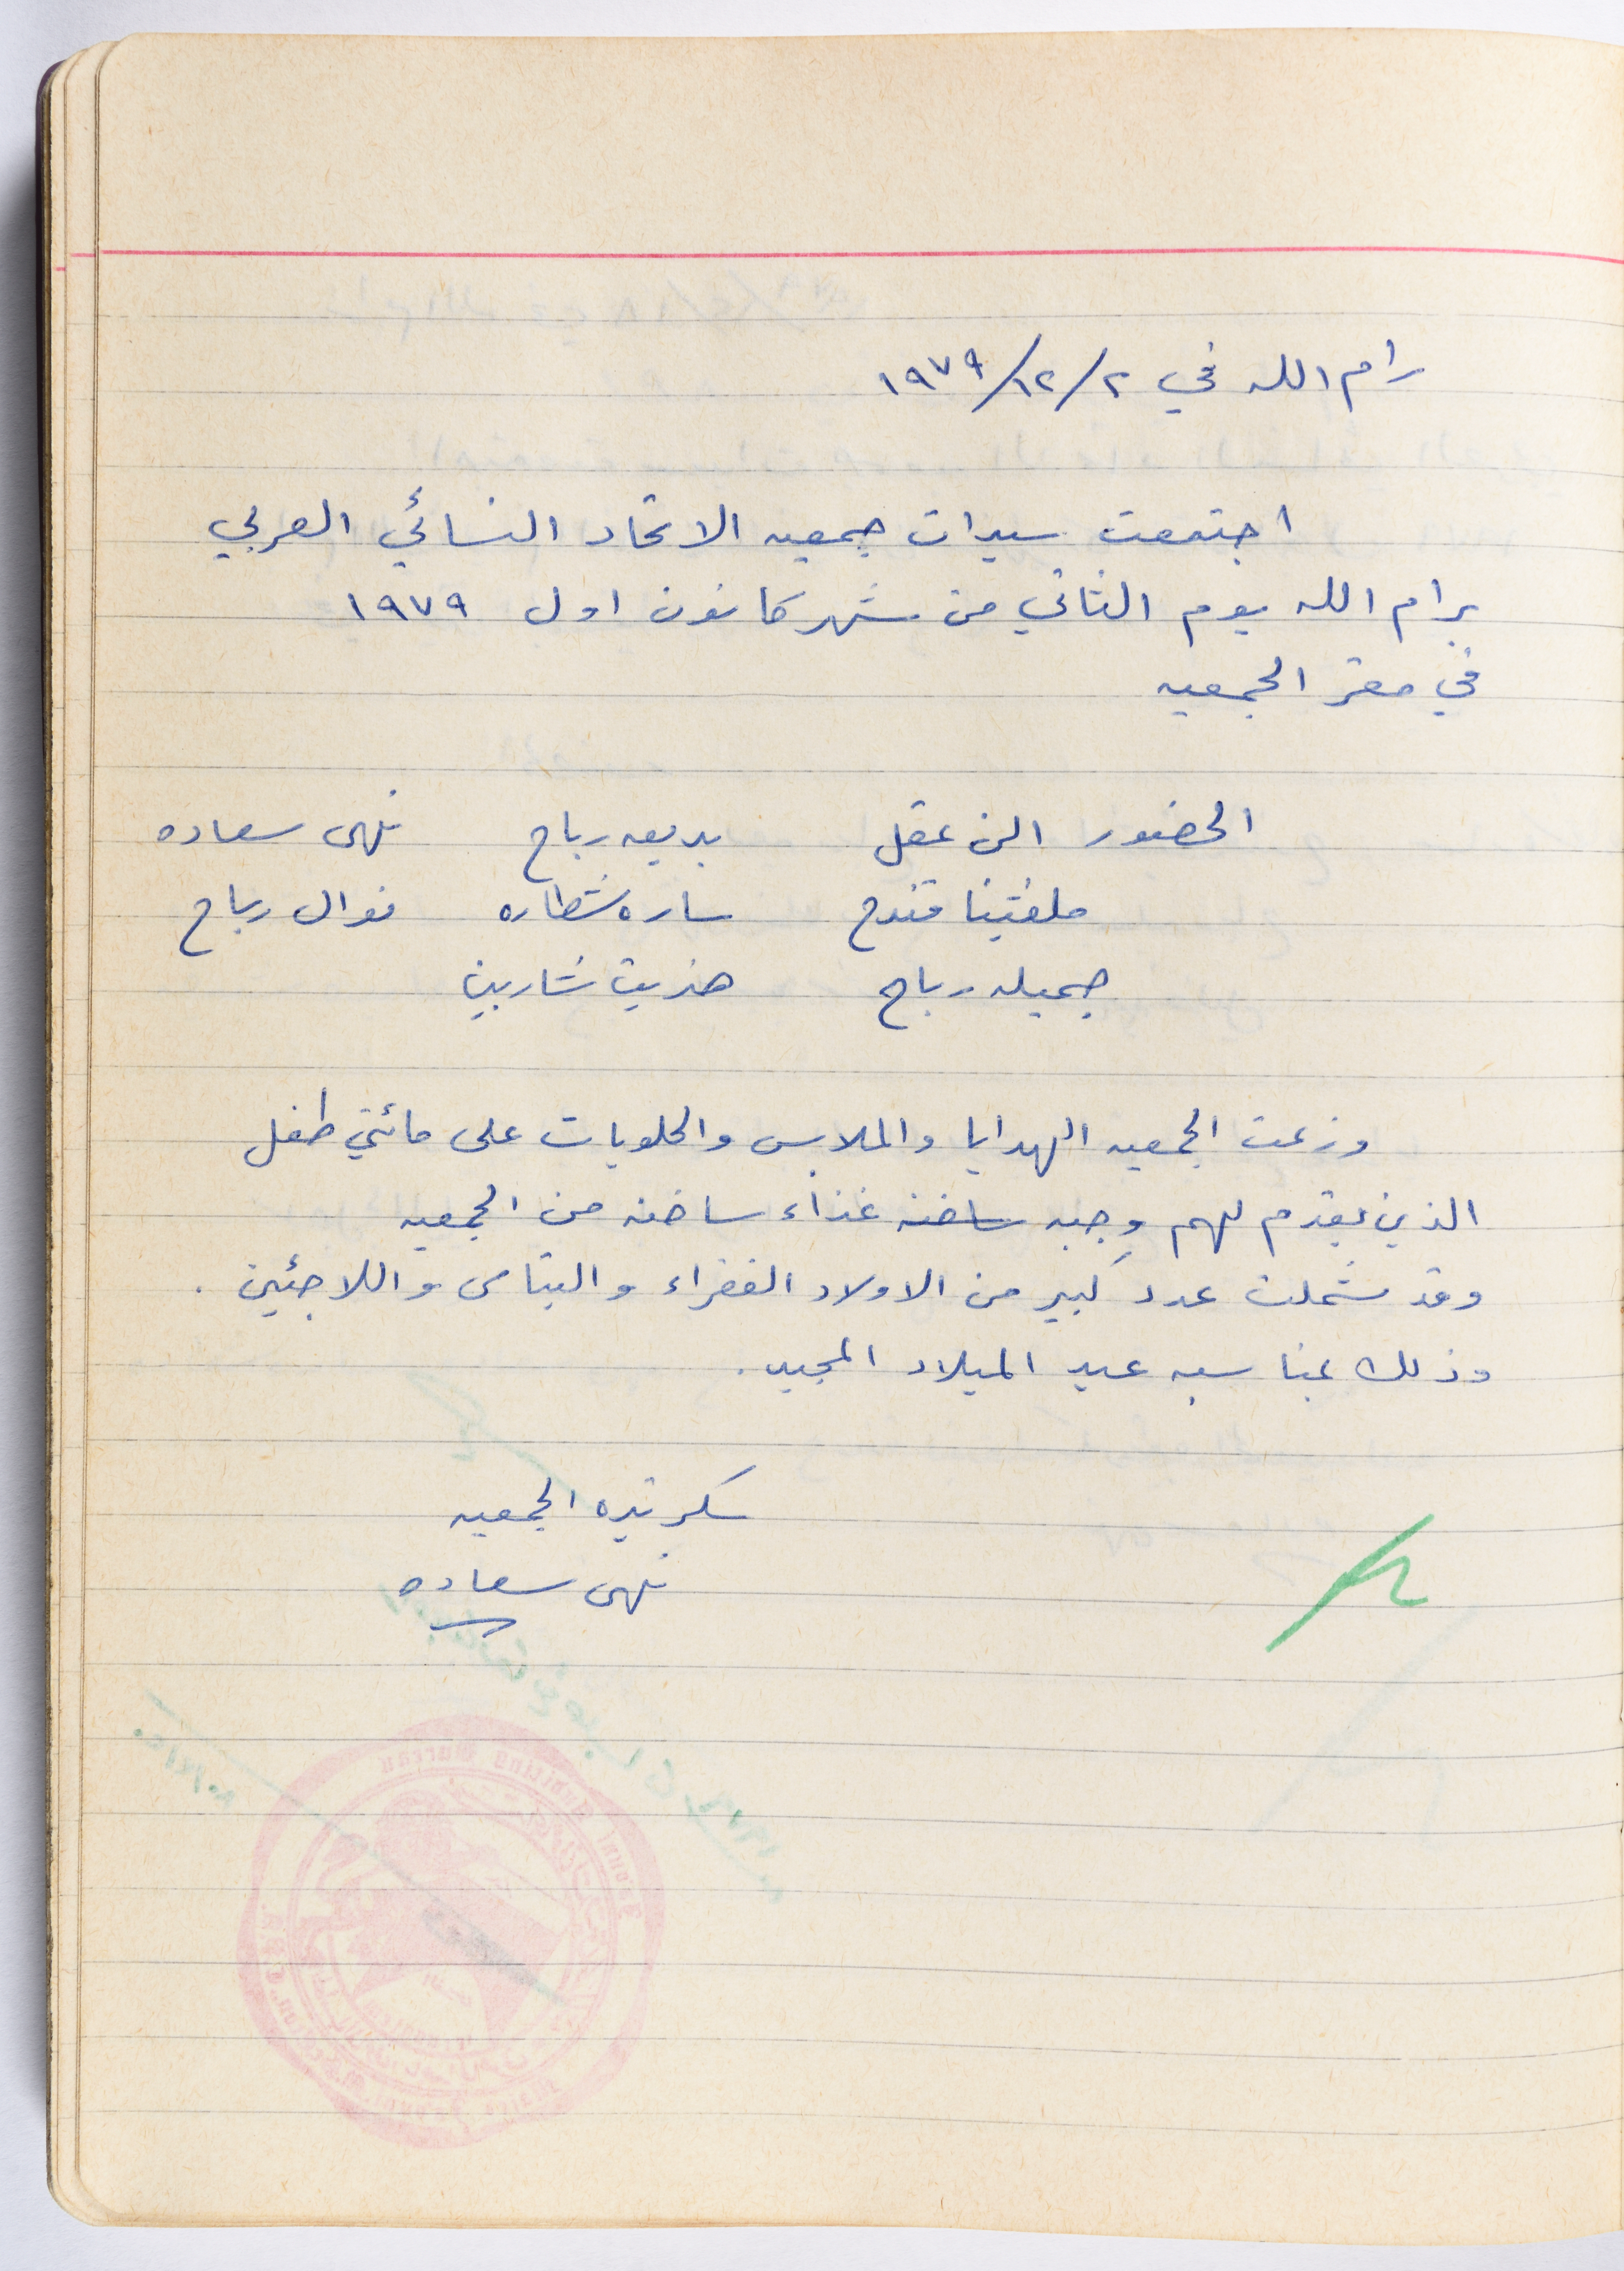 رام الله في ٢/١٢/١٩٧٩
اجتمعت سيدات جمعيه الاتحاد النسائي العربي
برام الله يوم الثاني من شهر كانون اول ١٩٧٩
في مقر الجمعيه
الحضور الن عقل بديعه رباح نهى سعاده
ملفينا قندح ساره شطاره نوال رباح
جميله رباح هنريت شاربين
وزعت الجمعيه الهدايا والملابس والحلويات على مائتي طفل
الذين يقدم لهم وجبه ساخنه غذاء ساخنه من الجمعيه
وقد شملت عدد كبير من الاولاد الفقراء واليتامى واللاجئين .
وذلك بمناسبه عيد الميلاد المجيد .
سكرتيره الجمعيه
نهى سعاده